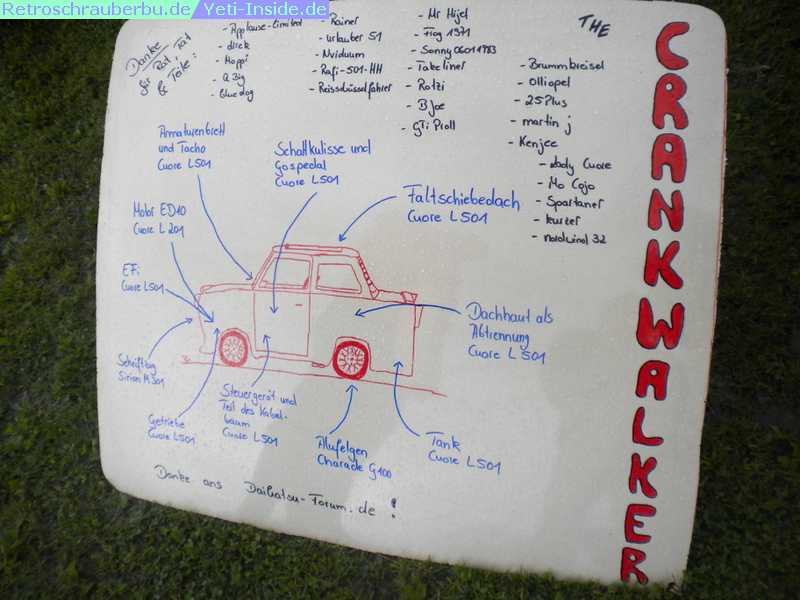 Retroschrauberbu.de / Yeti-Inside.de
Danke
für Rat, Tat
& Teile:
- Applause-Limited
- dierk
- Hoppi
- Q Big
- bluedog
- Rainer
- urlauber 51
- Nviduum
- Rafi-501-HH
- Reisschüsselfahrer
- Mr Hijet
- Frog 1971
- Sonny06011983
- Takeliner
- Rotzi
- B Joe
- GTi Proll
- Brummbreisel
- Olliopel
- 25Plus
- martin j
- Kenjee
- Lady Cuore
- Mo Cojo
- Spartaner
- kurzer
- nordwind 32
THE
CRANKWALKER
Armaturenbrett
und Tacho
Cuore L501
Schaltkulisse und
Gaspedal
Cuore L501
Faltschiebedach
Cuore L501
Motor ED10
Cuore L201
EFi
Cuore L501
Dachhaut als
Abtrennung
Cuore L501
Schriftzug
Sirion M301
Getriebe
Cuore L501
Steuergerät und
Teil des Kabel-
baum
Cuore L501
Alufelgen
Charade G100
Tank
Cuore L501
Danke ans Daihatsu-Forum.de!